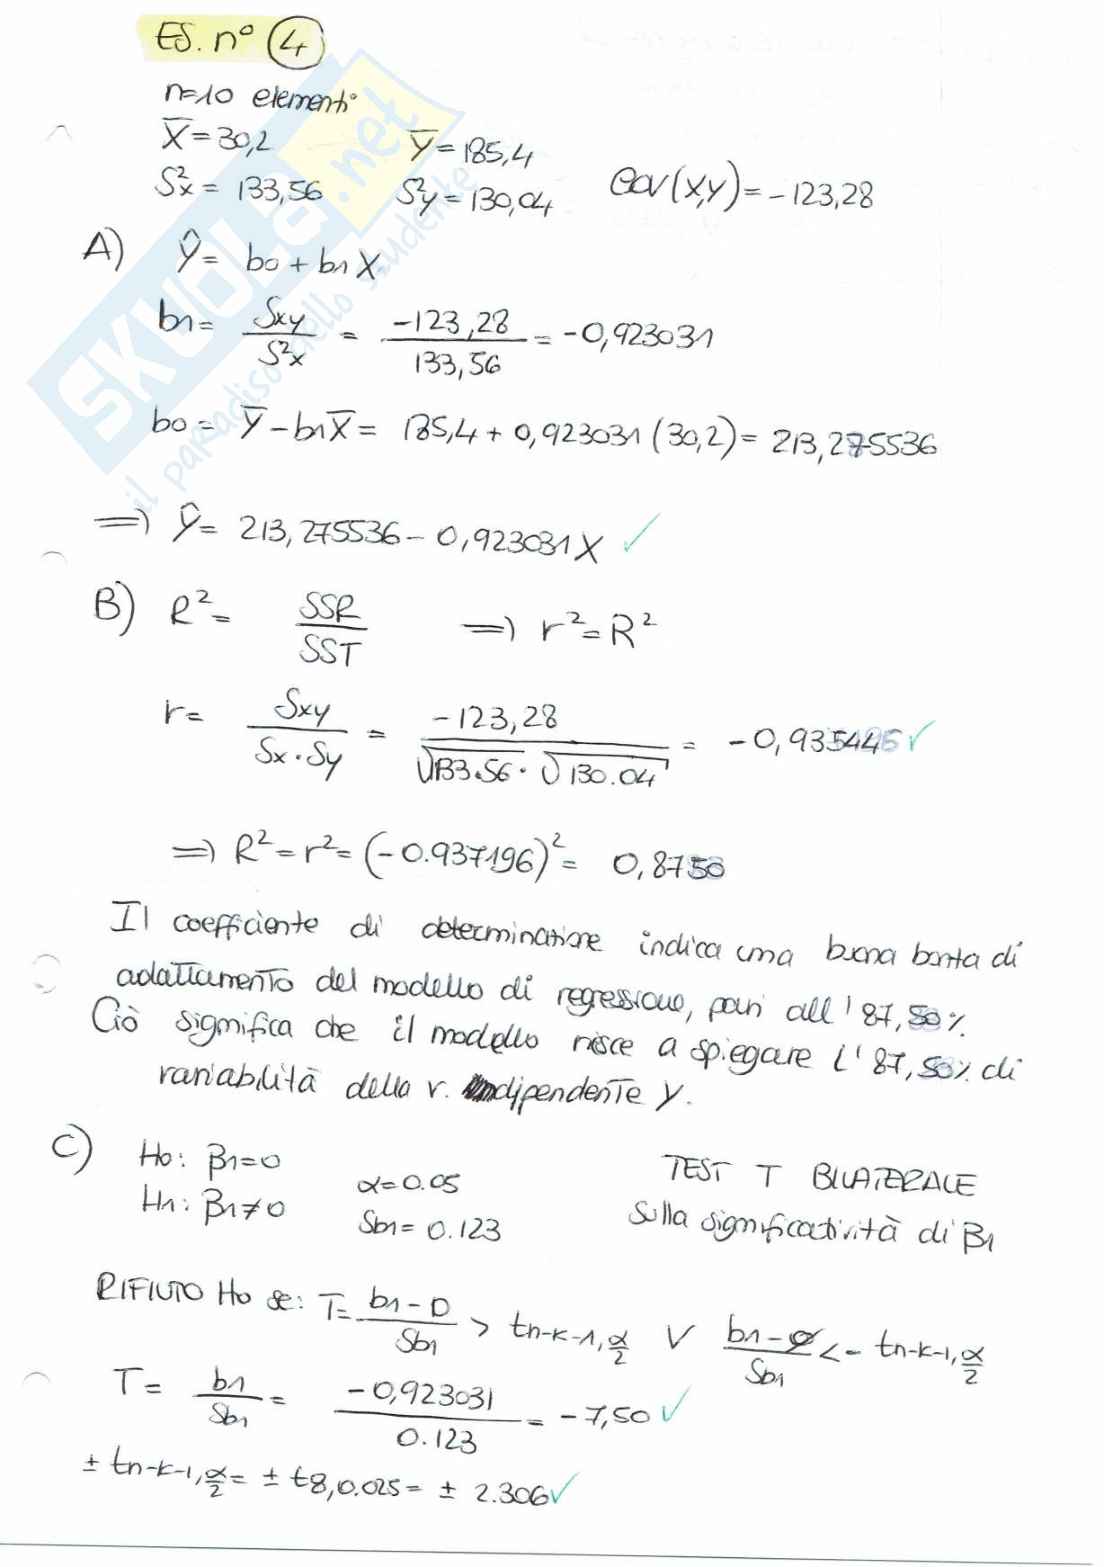 ES. n° 4
n=10 elementi
X̄ = 30,2    Ȳ = 185,4
S²x = 133,56    S²y = 130,04    Cov(X,Y) = -123,28
A) Ŷ = b0 + b1 X
b1 = Sxy / S²x = -123,28 / 133,56 = -0,923031
b0 = Ȳ - b1X̄ = 185,4 + 0,923031 (30,2) = 213,275536
=> Ŷ = 213,275536 - 0,923031 X ✓
B) R² = SSR / SST => r² = R²
r = Sxy / Sx · Sy = -123,28 / √133.56 · √130.04 = -0,935445 ✓
=> R² = r² = (-0.937196)² = 0,8750
Il coefficiente di determinatione indica una buona bontà di
adattamento del modello di regressione, pari all'87,50%.
Ciò significa che il modello riesce a spiegare l'87,50% di
variabilità della v. dipendente y.
C) H0: β1=0    TEST T BILATERALE
α=0.05
H1: β1≠0    Sulla significatività di β1
Sb1 = 0.123
RIFIUTO H0 se: T = b1-0 / Sb1 > tn-k-1, α/2 V b1-0 / Sb1 < - tn-k-1, α/2
T = b1 / Sb1 = -0,923031 / 0.123 = -7,50 ✓
± tn-k-1, α/2 = ± t8,0.025 = ± 2.306 ✓
SKUOLA.net
il paradiso dello studente